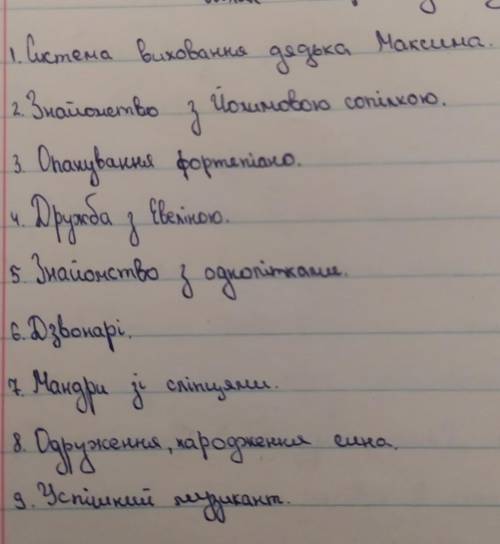 1. Система виховання дядька Максима.
2. Знайомство з Йохимовою сопілкою.
3. Опанування фортепіано.
4. Дружба з Евеліною.
5. Знайомство з однолітками.
6. Дзвонарі.
7. Мандри зі сліпцями.
8. Одруження, народження сина.
9. Успішний музикант.